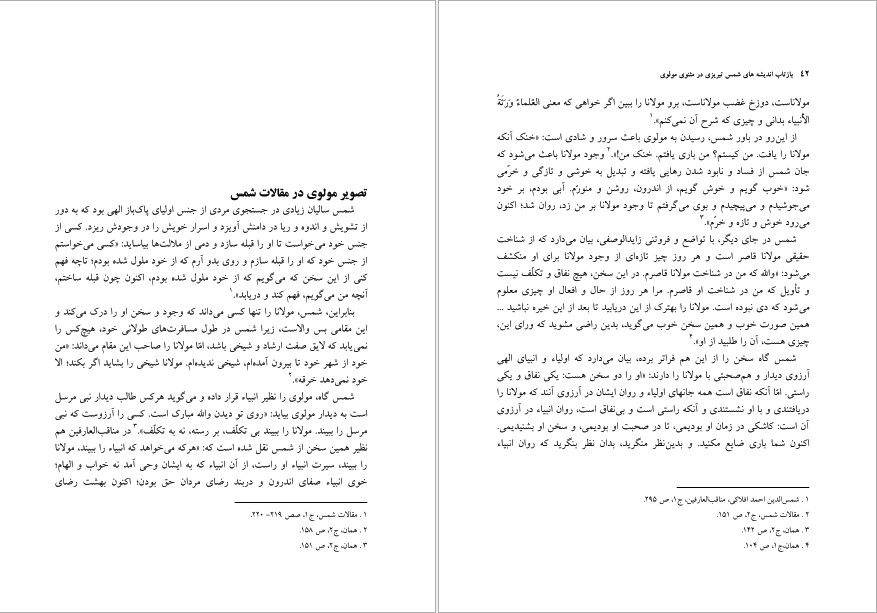 تصویر مولوی در مقالات شمس
شمس سالیان زیادی در جستجوی مردی از جنس اولیای پاک‌باز الهی بود که به دور
از تشویش و اندوه و ریا در دامنش آویزد و اسرار خویش را در وجودش ریزد. کسی از
جنس خود می‌خواست تا او را قبله سازد و دمی از ملالت‌ها بیاساید: «کسی می‌خواستم
از جنس خود که او را قبله سازم و روی بدو آرم که از خود ملول شده بودم؛ تاچه فهم
کنی از این سخن که می‌گویم که از خود ملول شده بودم، اکنون چون قبله ساختم،
آنچه من می‌گویم، فهم کند و دریابد».۱
بنابراین، شمس، مولانا را تنها کسی می‌داند که وجود و سخن او را درک می‌کند و
این مقامی بس والاست، زیرا شمس در طول مسافرت‌های طولانی خود، هیچ‌کس را
نمی‌یابد که لایق صفت ارشاد و شیخی باشد، امّا مولانا را صاحب این مقام می‌داند: «من
خود از شهر خود تا بیرون آمده‌ام، شیخی ندیده‌ام. مولانا شیخی را بشاید اگر بکند؛ الا
خود نمی‌دهد خرقه».۲
شمس گاه، مولوی را نظیر انبیاء قرار داده و می‌گوید هرکس طالب دیدار نبی مرسل
است به دیدار مولوی بیاید: «روی تو دیدن والله مبارک است. کسی را آرزوست که نبی
مرسل را ببیند. مولانا را ببیند بی تکلّف، بر رسته، نه به تکلّف».۳ در مناقب‌العارفین هم
نظیر همین سخن از شمس نقل شده است که: «هرکه می‌خواهد که انبیاء را ببیند، مولانا
را ببیند، سیرت انبیاء او راست، از آن انبیاء که به ایشان وحی آمد نه خواب و الهام؛
خوی انبیاء صفای اندرون و دربند رضای مردان حق بودن؛ اکنون بهشت رضای
۱ . مقالات شمس، ج۱، صص ۲۱۹- ۲۲۰.
۲ . همان، ج۲، ص ۱۵۸.
۳ . همان، ج۲، ص ۱۵۱.
۴۲ بازتاب اندیشه های شمس تبریزی در مثنوی مولوی
مولاناست، دوزخ غضب مولاناست، برو مولانا را ببین اگر خواهی که معنی العُلماءُ وَرَثَةُ
الأنبیاء بدانی و چیزی که شرح آن نمی‌کنم».۱
از این‌رو در باور شمس، رسیدن به مولوی باعث سرور و شادی است: «خنک آنکه
مولانا را یافت. من کیستم؟ من باری یافتم. خنک من!».۲ وجود مولانا باعث می‌شود که
جان شمس از فساد و نابود شدن رهایی یافته و تبدیل به خوشی و تازگی و خرّمی
شود: «خوب گویم و خوش گویم، از اندرون، روشن و منوّرم. آبی بودم، بر خود
می‌جوشیدم و می‌پیچیدم و بوی می‌گرفتم تا وجود مولانا بر من زد، روان شد؛ اکنون
می‌رود خوش و تازه و خرّم».۳
شمس در جای دیگر، با تواضع و فروتنی زایدالوصفی، بیان می‌دارد که از شناخت
حقیقی مولانا قاصر است و هر روز چیز تازه‌ای از وجود مولانا برای او منکشف
می‌شود: «والله که من در شناخت مولانا قاصرم. در این سخن، هیچ نفاق و تکلّف نیست
و تأویل که من در شناخت او قاصرم. مرا هر روز از حال و افعال او چیزی معلوم
می‌شود که دی نبوده است. مولانا را بهترک از این دریابید تا بعد از این خیره نباشید ...
همین صورت خوب و همین سخن خوب می‌گوید، بدین راضی مشوید که ورای این،
چیزی هست، آن را طلبید از او».۴
شمس گاه سخن را از این هم فراتر برده، بیان می‌دارد که اولیاء و انبیای الهی
آرزوی دیدار و هم‌صحبتی با مولانا را دارند: «او را دو سخن هست: یکی نفاق و یکی
راستی. امّا آنکه نفاق است همه جانهای اولیاء و روان ایشان در آرزوی آنند که مولانا را
دریافتندی و با او نشستندی و آنکه راستی است و بی‌نفاق است، روان انبیاء در آرزوی
آن است: کاشکی در زمان او بودیمی، تا در صحبت او بودیمی، و سخن او بشنیدیمی.
اکنون شما باری ضایع مکنید. و بدین‌نظر منگرید، بدان نظر بنگرید که روان انبیاء
۱ . شمس‌الدین احمد افلاکی، مناقب‌العارفین، ج۱، ص ۲۹۵.
۲ . مقالات شمس، ج۲، ص ۱۵۱.
۳ . همان، ج۲، ص ۱۴۲.
۴ . همان،ج۱، ص ۱۰۴.